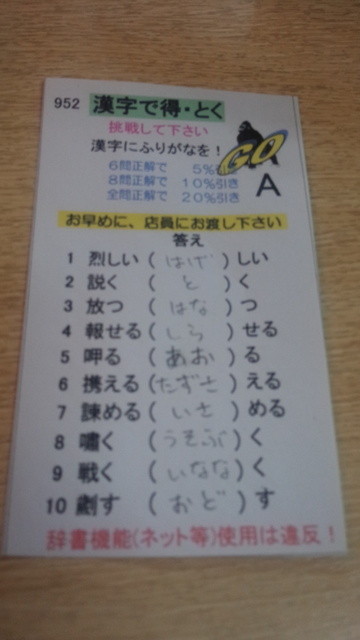 952 漢字で得・とく
挑戦して下さい
漢字にふりがなを！
GO
6問正解で 5%
8問正解で 10%引き
全問正解で 20%引き
A
お早めに、店員にお渡し下さい
答え
1 烈しい ( はげ ) しい
2 説く ( と ) く
3 放つ ( はな ) つ
4 報せる ( しら ) せる
5 呷る ( あお ) る
6 携える (たずさ ) える
7 諫める ( いさ ) める
8 嘯く ( うそぶ ) く
9 戦く ( いなな ) く
10 劃す ( おど ) す
辞書機能(ネット等)使用は違反！